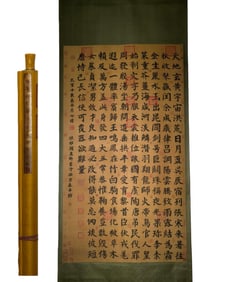 天地玄黃宇宙洪荒日月盈昃辰宿列張寒來暑往
秋收冬藏閏餘成歲律呂調陽雲騰致雨露結為霜
金生麗水玉出崑岡劍號巨闕珠稱夜光果珍李柰
菜重芥薑海鹹河淡鱗潛羽翔龍師火帝鳥官人皇
始制文字乃服衣裳推位讓國有虞陶唐弔民伐罪
周發殷湯坐朝問道垂拱平章愛育黎首臣伏戎羌
遐邇壹體率賓歸王鳴鳳在樹白駒食場化被草木
賴及萬方蓋此身髮四大五常恭惟鞠養豈敢毀傷
女慕貞潔男效才良知過必改得能莫忘罔談彼短
靡恃己長信使可覆器欲難量